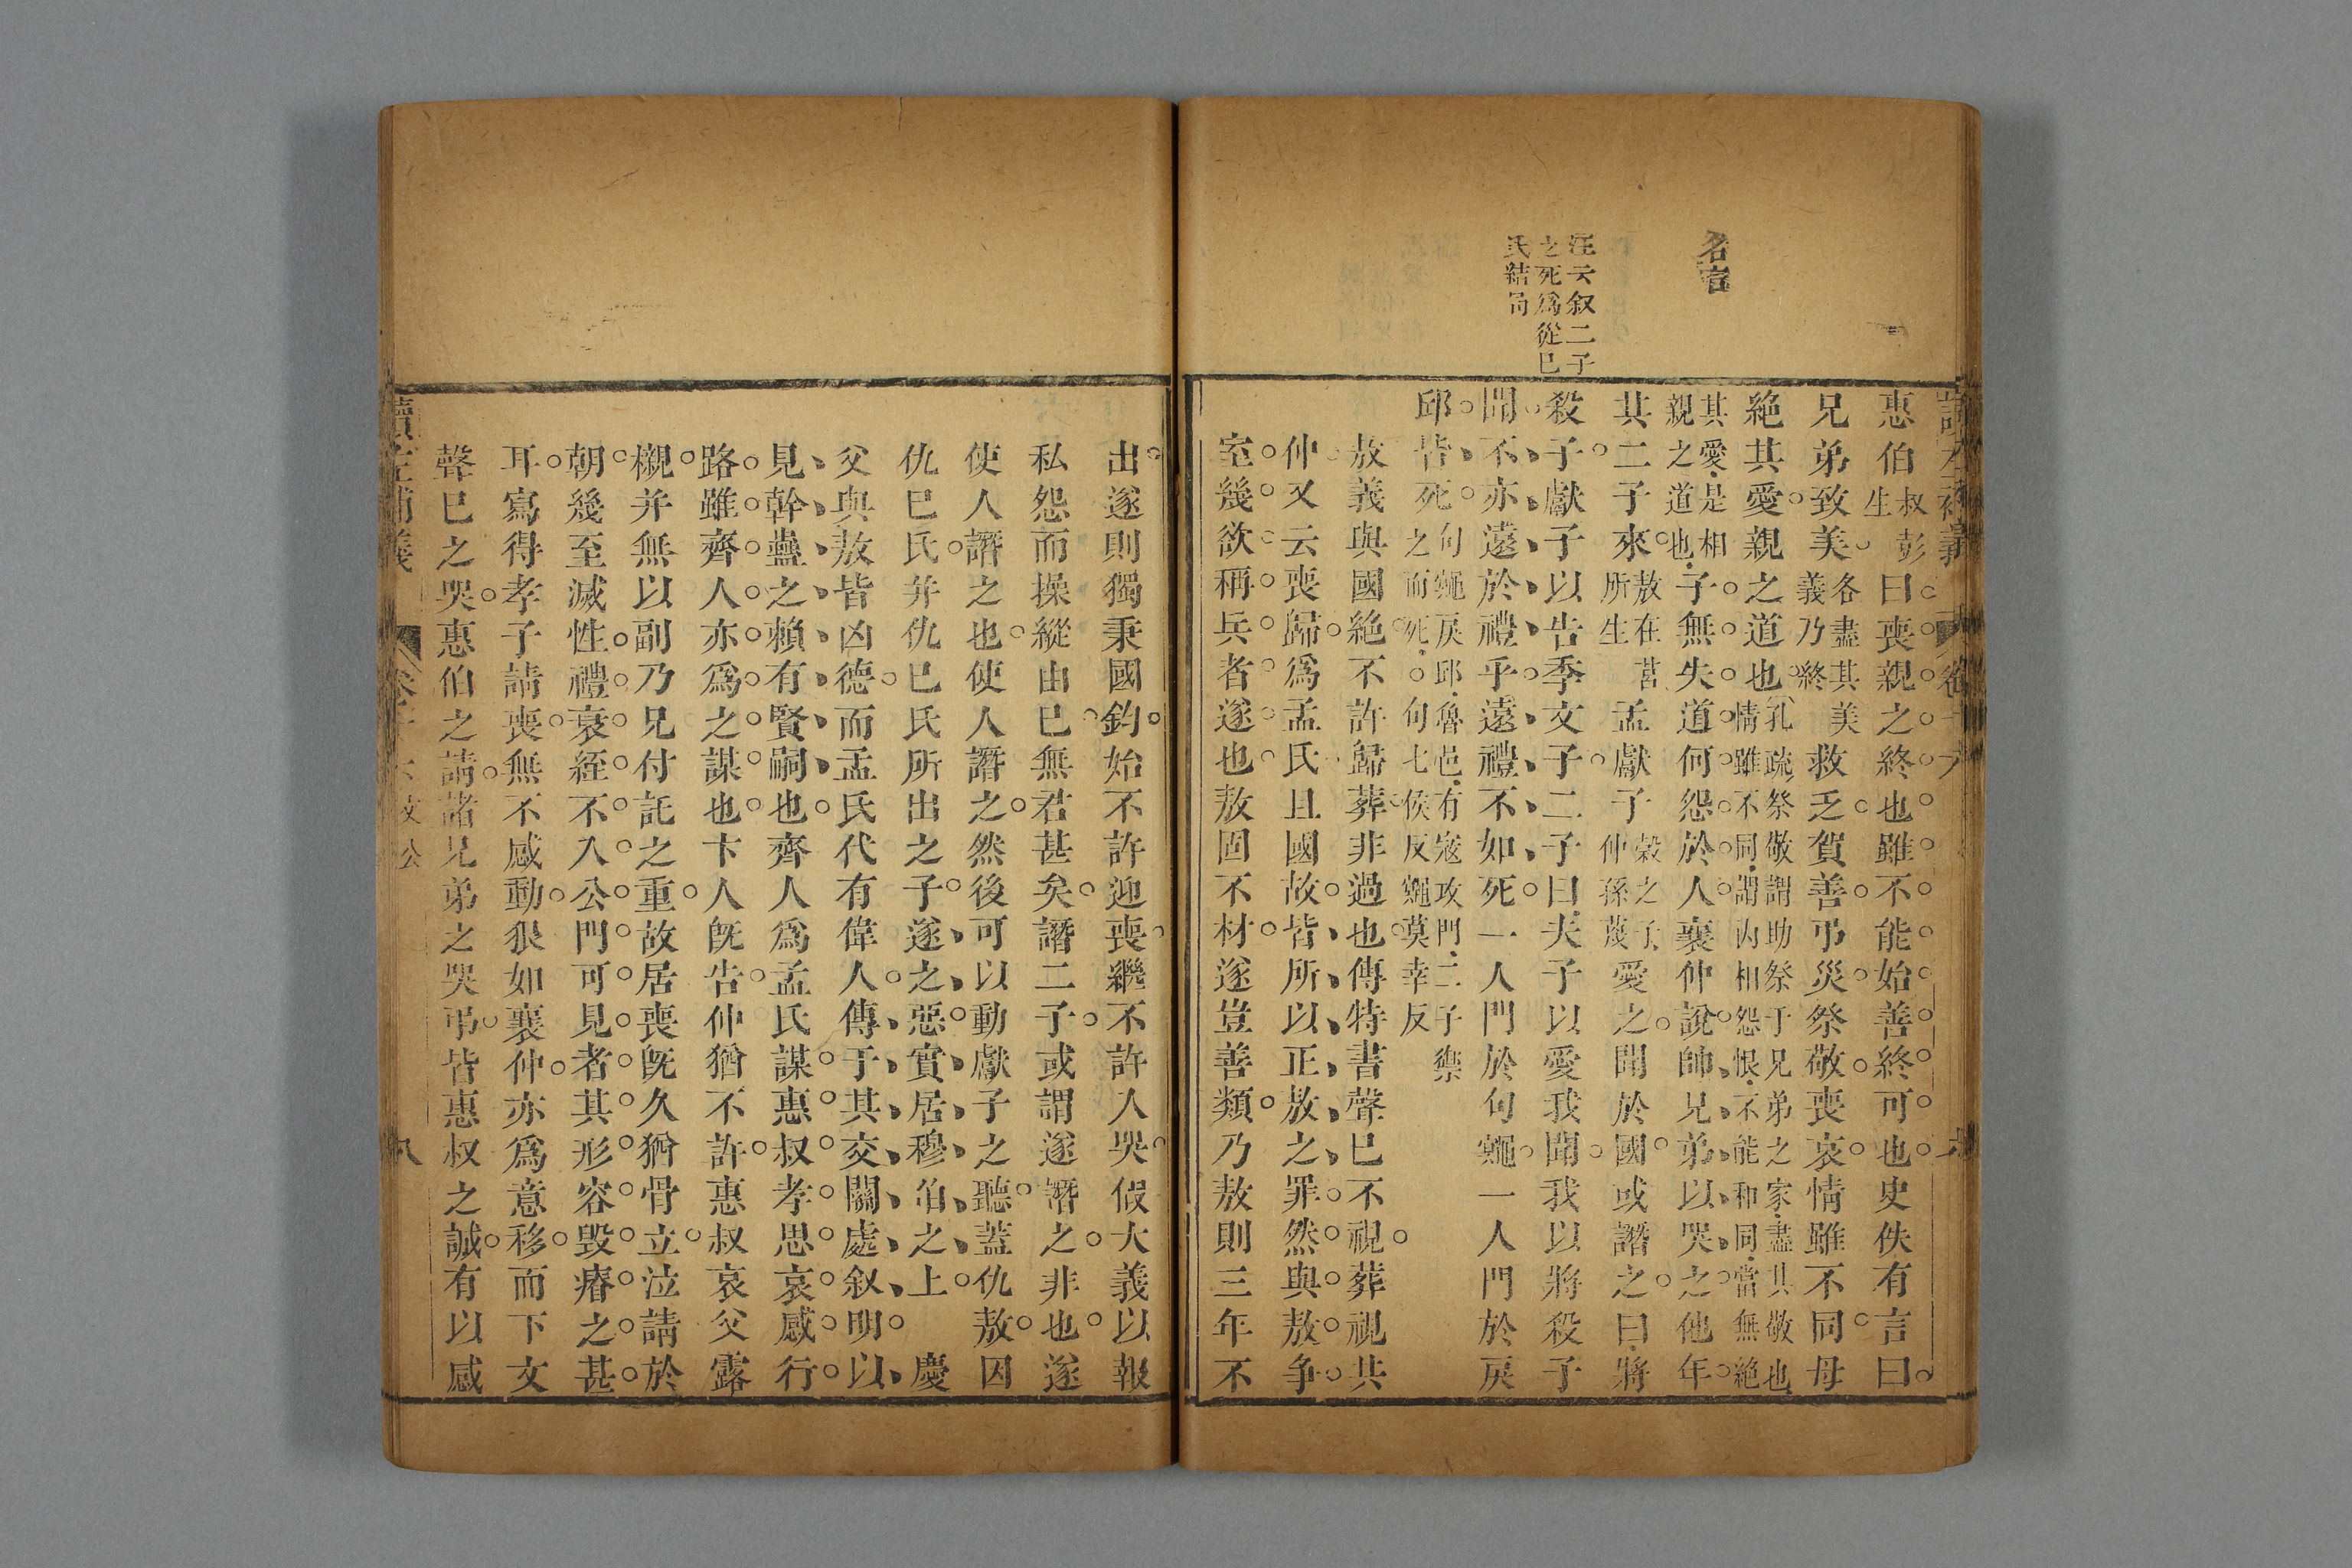 名言
汪云叙二子
之死爲從已
氏結局
惠伯叔彭生曰喪親之終也雖不能始善終可也史佚有言曰
兄弟致美各盡其美義乃終救乏賀善弔災祭敬喪哀情雖不同母
絕其愛親之道也孔疏祭敬謂助祭于兄弟之家盡其敬也情雖不同謂內相怨恨不能和同當無絕
其愛是相親之道也子無失道何怨於人襄仲說帥兄弟以哭之他年
其二子來敖在莒所生孟獻子穀之子仲孫蔑愛之聞於國或譖之曰將
殺子獻子以告季文子二子曰夫子以愛我聞我以將殺子
聞不亦遠於禮乎遠禮不如死一人門於句鼆一人門於戾
邱皆死句鼆戾邱魯邑有寇攻門二子禦之而死○句七侯反鼆莫幸反
敖義與國絕不許歸葬非過也傳特書聲已不視葬視共
仲又云喪歸爲孟氏且國故皆所以正敖之罪然與敖争
室幾欲稱兵者遂也敖固不材遂豈善類乃敖則三年不
出遂則獨秉國鈞始不許迎喪繼不許人哭假大義以報
私怨而操縱由已無君甚矣譖二子或謂遂譖之非也遂
使人譖之也使人譖之然後可以動獻子之聽蓋仇敖因
仇巳氏并仇巳氏所出之子遂之惡實居穆伯之上　慶
父與敖皆凶德而孟氏代有偉人傳于其交關處叙明以
見幹蠱之賴有賢嗣也齊人爲孟氏謀惠叔孝思哀感行
路雖齊人亦爲之謀也卞人旣告仲猶不許惠叔哀父露
櫬并無以副乃兄付託之重故居喪旣久猶骨立泣請於
朝幾至滅性禮衰絰不入公門可見者其形容毀瘠之甚
耳寫得孝子請喪無不感動狠如襄仲亦爲意移而下文
聲已之哭惠伯之請諸兄弟之哭弔皆惠叔之誠有以感